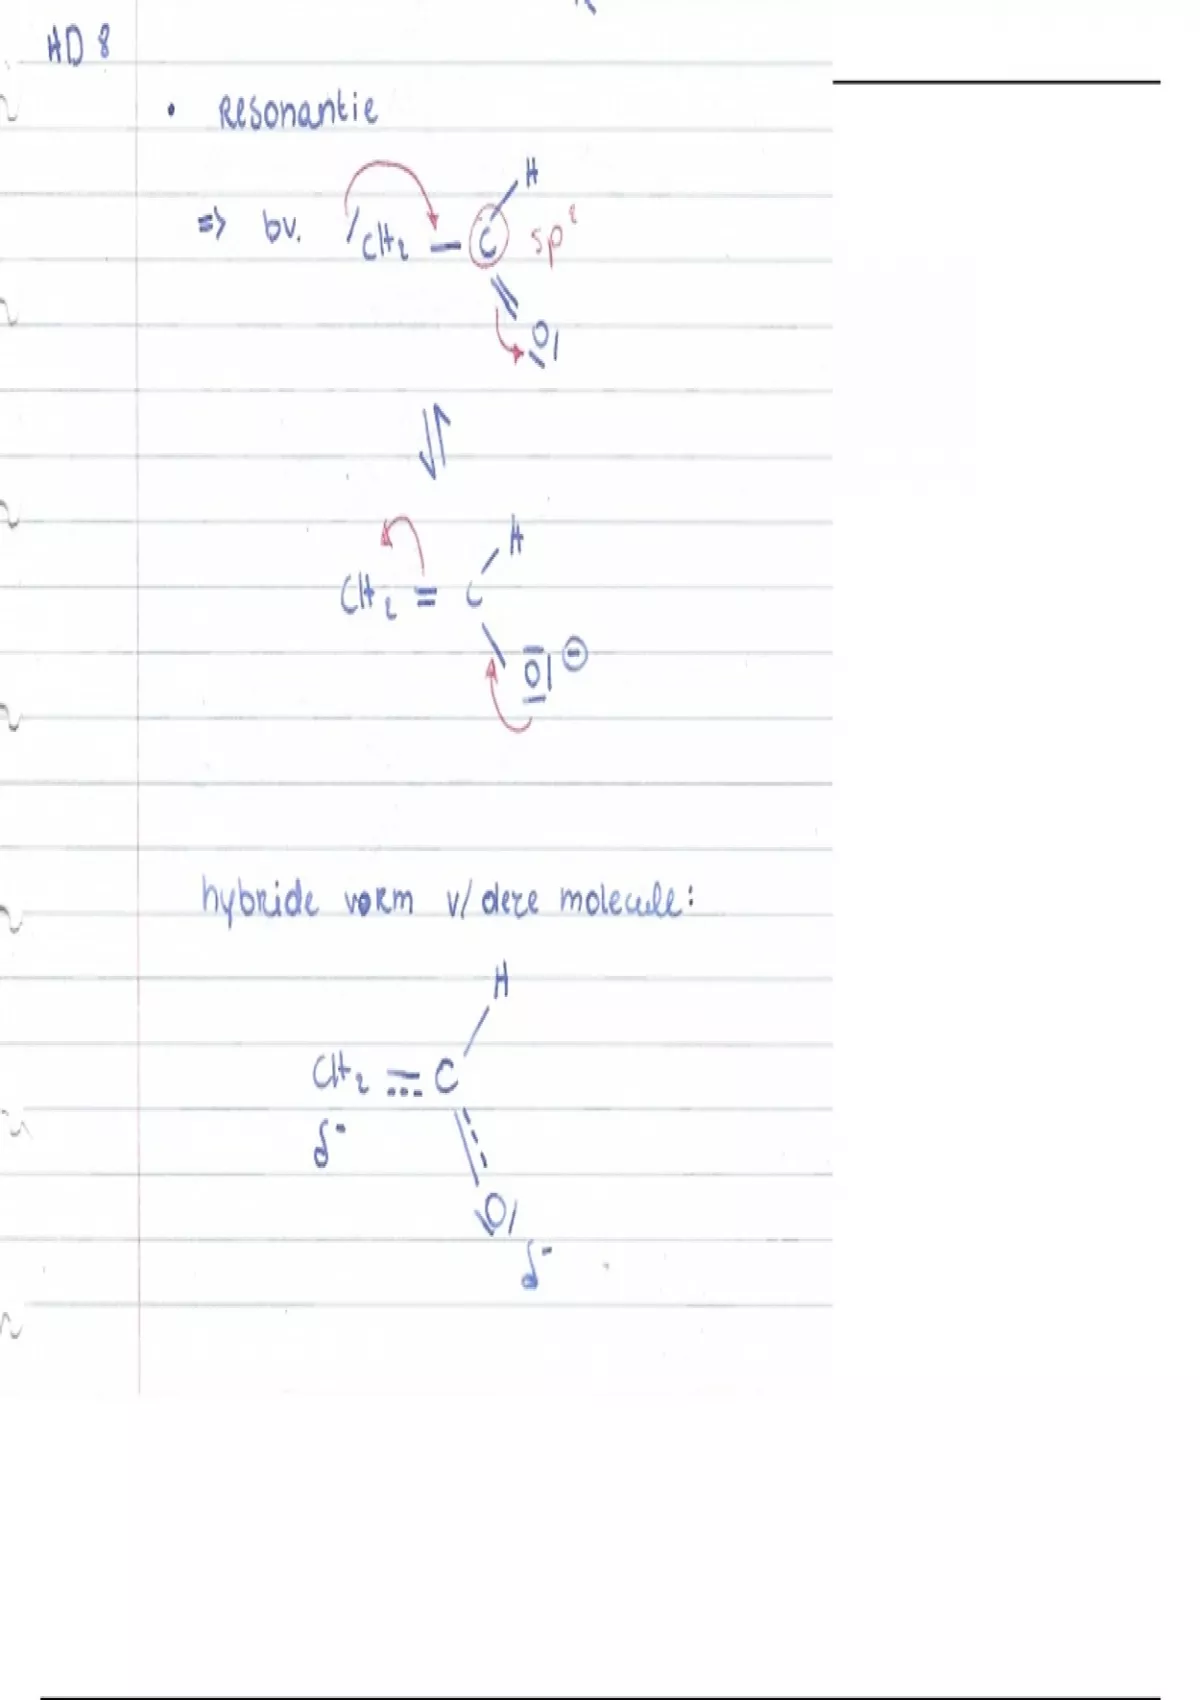 HD 8
• Resonantie
H
=> bv. /CH2 — C sp2
O|
H
CH2 = C
O| ⊖
hybride vorm v/ deze molecule:
H
CH2 = C
δ-
O|
δ-